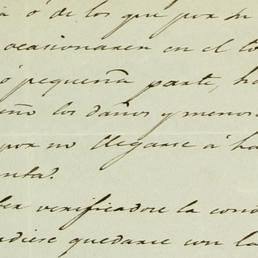 ó de los que por su
ocasionaren en el to
ó pequeña parte, ha
eño los daños y menos
por no llegarse á ha
enta?
verificadose la cono
udiese quedarse con la